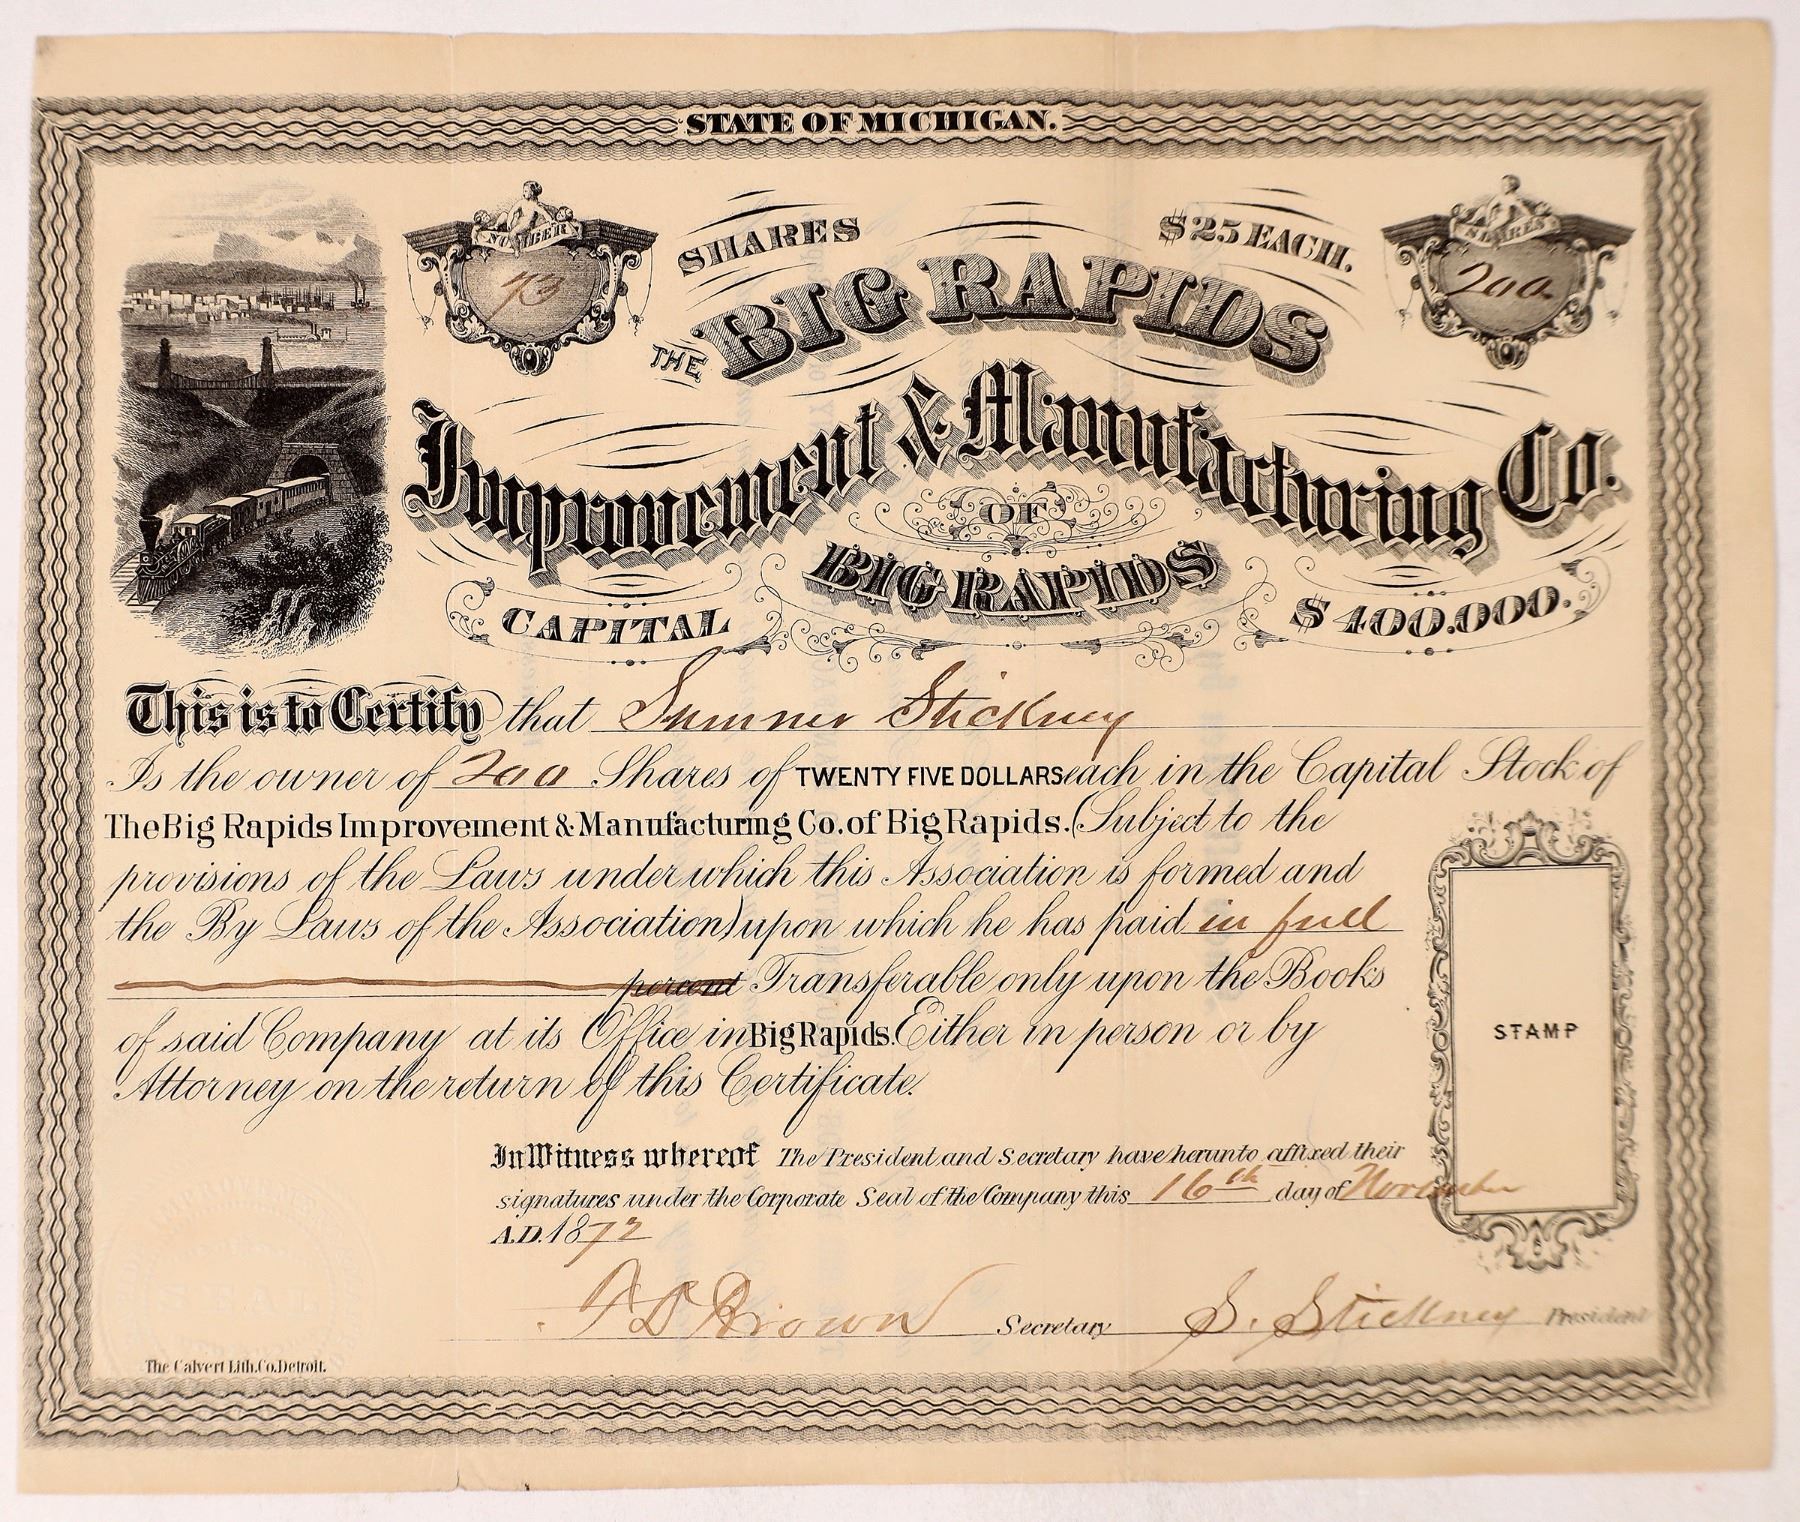 STATE OF MICHIGAN.
NUMBER
73
SHARES $25 EACH.
SHARES
200
THE BIG RAPIDS
Improvement & Manufacturing Co.
OF
BIG RAPIDS
CAPITAL $400.000.
This is to Certify that Sumner Stickney
Is the owner of 200 Shares of TWENTY FIVE DOLLARS each in the Capital Stock of
The Big Rapids Improvement & Manufacturing Co. of Big Rapids. (Subject to the
provisions of the Laws under which this Association is formed and
the By Laws of the Association) upon which he has paid in full
percent Transferable only upon the Books
of said Company at its Office in Big Rapids. Either in person or by
Attorney on the return of this Certificate.
STAMP
In Witness whereof The President and Secretary have herunto affixed their
signatures under the Corporate Seal of the Company this 16th day of November
A.D. 1872
Brown Secretary S. Stickney President
The Calvert Lith. Co. Detroit.